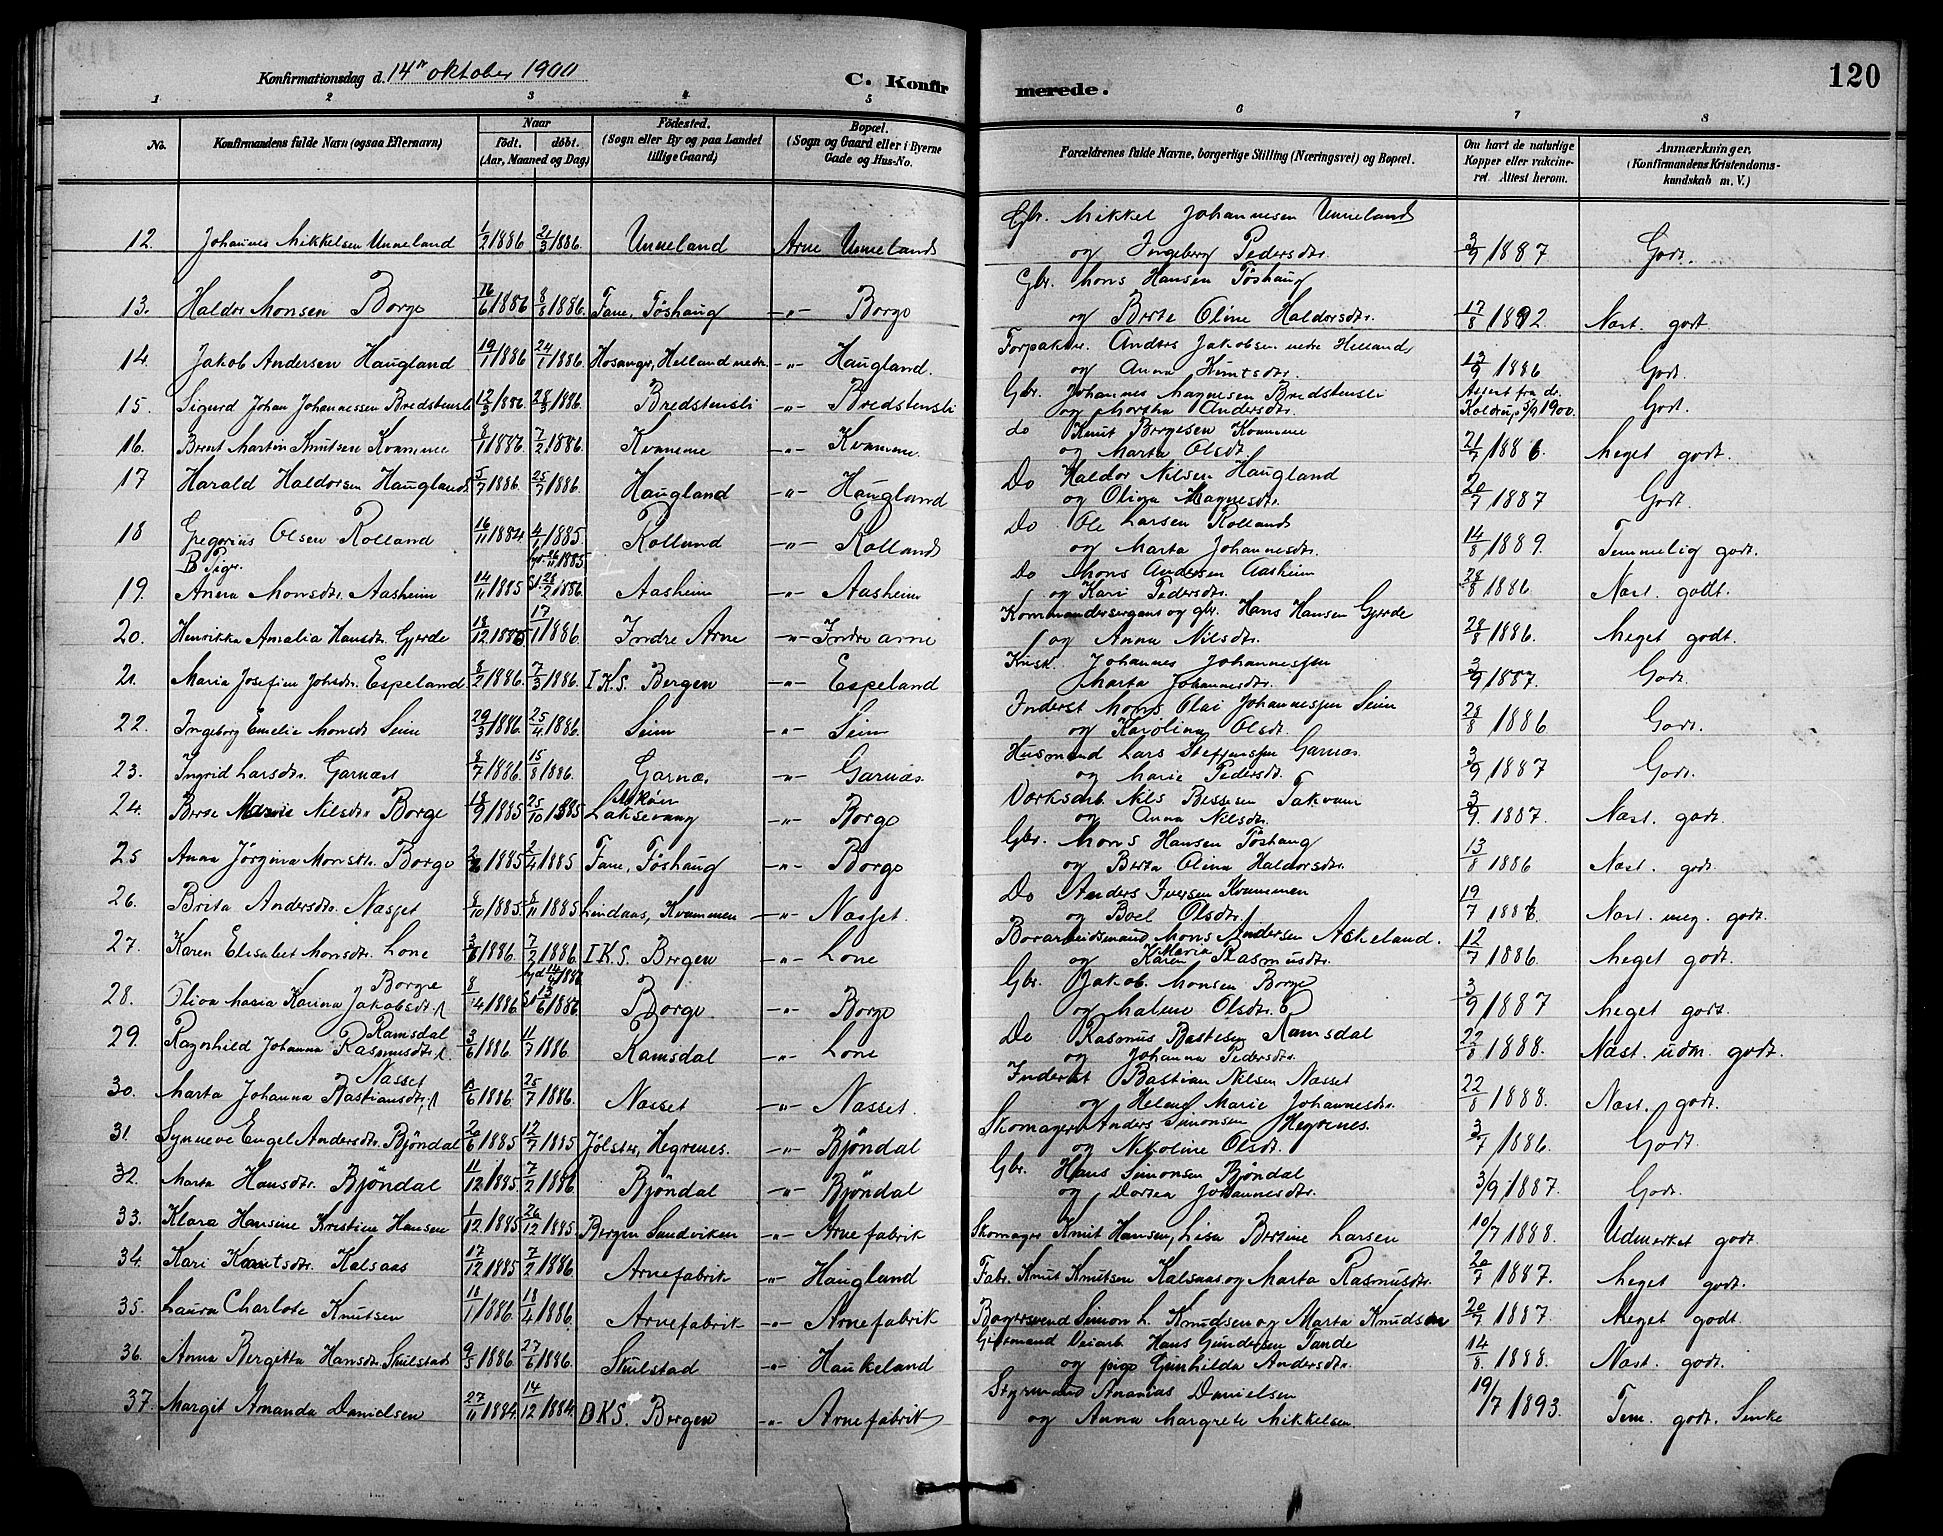 Konfirmationsdag d. 14de oktober 1900
C. Konfirmerede.
120
1 2 3 4 5 6 7 8
No.
Konfirmandens fulde Navn (ogsaa Efternavn)
Naar
født. døbt.
(Aar, Maaned og Dag)
Fødested.
(Sogn eller By og paa Landet tillige Gaard)
Bopæl.
(Sogn og Gaard eller i Byerne Gade og Hus-No.
Forældrenes fulde Navne, borgerlige Stilling (Næringsvei) og Bopæl.
Om havt de naturlige Kopper eller vakcineret. Attest herom.
Anmærkninger.
(Konfirmandens Kristendomskundskab m. V.)
12. Johannes Mikkelsen Unneland 1/2 1886 21/3 1886. Unneland Arne Unneland Gbr. Mikkel Johannesen Unneland
og Ingeborg Pedersdtr. 3/9 1887 Godt.
13. Haldor Monsen Borge 16/6 1886 8/8 1886. Fane, Töshaug -"- Borge Gbr. Mons Hansen Töshaug
og Berte Oline Haldorsdtr. 17/8 1892 Næst. godt.
14. Jakob Andersen Haugland 19/1 1886 24/1 1886. Hosanger, Helland nedre -"- Haugland. Forpakter. Anders Jakobsen nedre Helland
og Anna Knutsdtr. 13/9 1886 Godt.
15. Sigurd Johan Johannessen Bredstensli 12/3 1886 28/3 1886. Bredstensli -"- Bredstensli Gbr. Johannes Magnesen Bredstensli
og Martha Andersdtr. Attest fra dr. Koldrup 5/9 1900. Godt.
16. Brent Martin Knutsen Kvamme 8/1 1886. 7/2 1886. Kvamme -"- Kvamme. do Knut Börgesen Kvamme
og Marta Olsdt. 21/7 1886. Meget godt.
17 Harald Haldorsen Haugland 5/7 1886. 25/7 1886. Haugland -"- Haugland Do Haldor Nilsen Haugland
og Olina Magnesdtr. 20/7 1887 Godt.
18 Gregorius Olsen Rolland 16/11 1884 4/1 1885 Rolland -"- Rolland Do Ole Larsen Rolland
og Marta Johannesdtr. 14/8 1889. Temmelig godt.
B Piger.
19. Anna Monsdtr. Aasheim 14/11 1885 hjd. 26/11 1885. St. 28/2 1886. Aasheim -"- Aasheim Do Mons Andersen Aasheim
og Kari Pedersdtr. 28/8 1886 Næst. godt.
20. Henrikka Amalia Hansdtr. Gjerde 18/12 1885 17/1 1886. Indre Arne -"- Indre arne Kommandersergant og gbr. Hans Hansen Gjerde
og Anna Nilsdtr. 28/8 1886. Meget godt.
21. Maria Josefine Johsdtr. Espeland 8/2 1886. 7/3 1886. I K.S. Bergen -"- Espeland Johannes Johannessen
Marta Johannesdtr. 3/9 1887. Godt.
22. Ingeborg Emelie Monsdt Seim 29/3 1886. 25/4 1886. Seim -"- Seim Inderst Mons Olai Johannessen Seim
og Karolina Olsdt. 28/8 1886 Godt.
23. Ingrid Larsdtr. Garnæs 8/7 1886. 15/8 1886. Garnæs -"- Garnæs. Husmand Lars Steffensen Garnæs.
og Marie Pedersdt. 3/9 1887 Godt.
24. Berte Marie Nilsdtr Borge 18/9 1885 25/10 1885 Askøen Laksevaag -"- Borge Værksarb. Nils Bessesen Takvam
og Anna Nilsdtr. 3/9. 1887. Næst. godt.
25 Anna Jörgina Monsdtr. Borge 1885 2/4 1885 Fane, Töshaug -"- Borge Gbr. Mons Hansen Töshaug
og Berta Olina Haldorsdtr. 13/8 1886 Næst. godt.
26. Brita Andersdtr. Næsset 8/10 1885. 8/11 1885 Lindaas, Kvammen -"- Næsset. Do Anders Iversen Kvammen
og Boel Olsdtr. 19/7 1886 Næst. meg. godt.
27. Karen Elisabet Monsdtr. Lone 3/1 1886. 7/2 1886. I K.S. Bergen -"- Lone Mons Andersen Askeland.
og Karen Maria Rasmusdtr. 12/7 1886. Meget godt.
28. Oliva Maria Karina Jakobsdt. Borge 8/4 1886. hjd 14/4 1886 St 13/6 1886 Borge. -"- Borge Gbr. Jakob Monsen Borge
og Malene Olsdtr. 3/9 1887 Meget godt.
29. Ragnhild Johanna Rasmusdtr. Ramsdal 3/6 1886 11/7 1886. Ramsdal -"- Lone Do Rasmus Bastesen Ramsdal
og Johanna Pedersdtr. 22/8 1888. Næst. udm. godt.
30. Marta Johanna Bastiansdtr. Næsset 1886. 25/7 1886. Næsset -"- Næsset. Inderst Bastian Nilsen Næsset
og Helene Marie Johannesdtr. 22/8 1888. Næst. godt.
31. Synneve Engel Andersdtr. Bjöndal 20/6 1885 12/7 1885 Jölster, Hegrenes. -"- Bjöndal Skomager Anders Simonsen Hegrenes.
og Nikoline Olsdt. 3/7 1886. Godt.
32. Marta Hansdtr. Bjöndal 11/12 1885. 7/2 1886 Bjöndal -"- Bjöndal Gbr. Hans Simonsen Bjöndal
og Dortea Johannesdtr. 3/9 1887. Godt.
33. Klara Hansine Kristine Hansen 1/12 1885 26/12 1885. Bergen Sandviken -"- Arne fabrik Skomager Knut Hansen, Lisa Bertine Larsen 10/7 1888. Udmerket godt.
34. Kari Knutsdtr. Kalsaas 17/12 1885 7/2 1886. Arnefabrik -"- Haugland Fabr. Knut Knutsen Kalsaas og Marta Rasmusdtr. 20/7 1887. Meget godt.
35. Laura Charlote Knutsen 18/1 1886. 18/4 1886. Arnefabrik -"- Arnefabrik Bagersvend Simon L. Knudsen og Marta Knudsen 20/7 1887. Meget godt
36. Anna Bergitta Hansdt. Skulstad 9/5 1886. 27/6 1886. Skulstad -"- Haukeland Giftmand Veiarb. Hans Gundersen Tande
og pige Gunhilda Andersdtr. 14/8. 1888. Næst. godt.
37. Margit Amanda Danielsen 27/11 1884. 14/12 1884. D K.S. Bergen -"- Arnefabrik Styrmand Ananias Danielsen
og Anna Margrete Mikkelsen. 19/7 1893. Tem. godt. Sinke